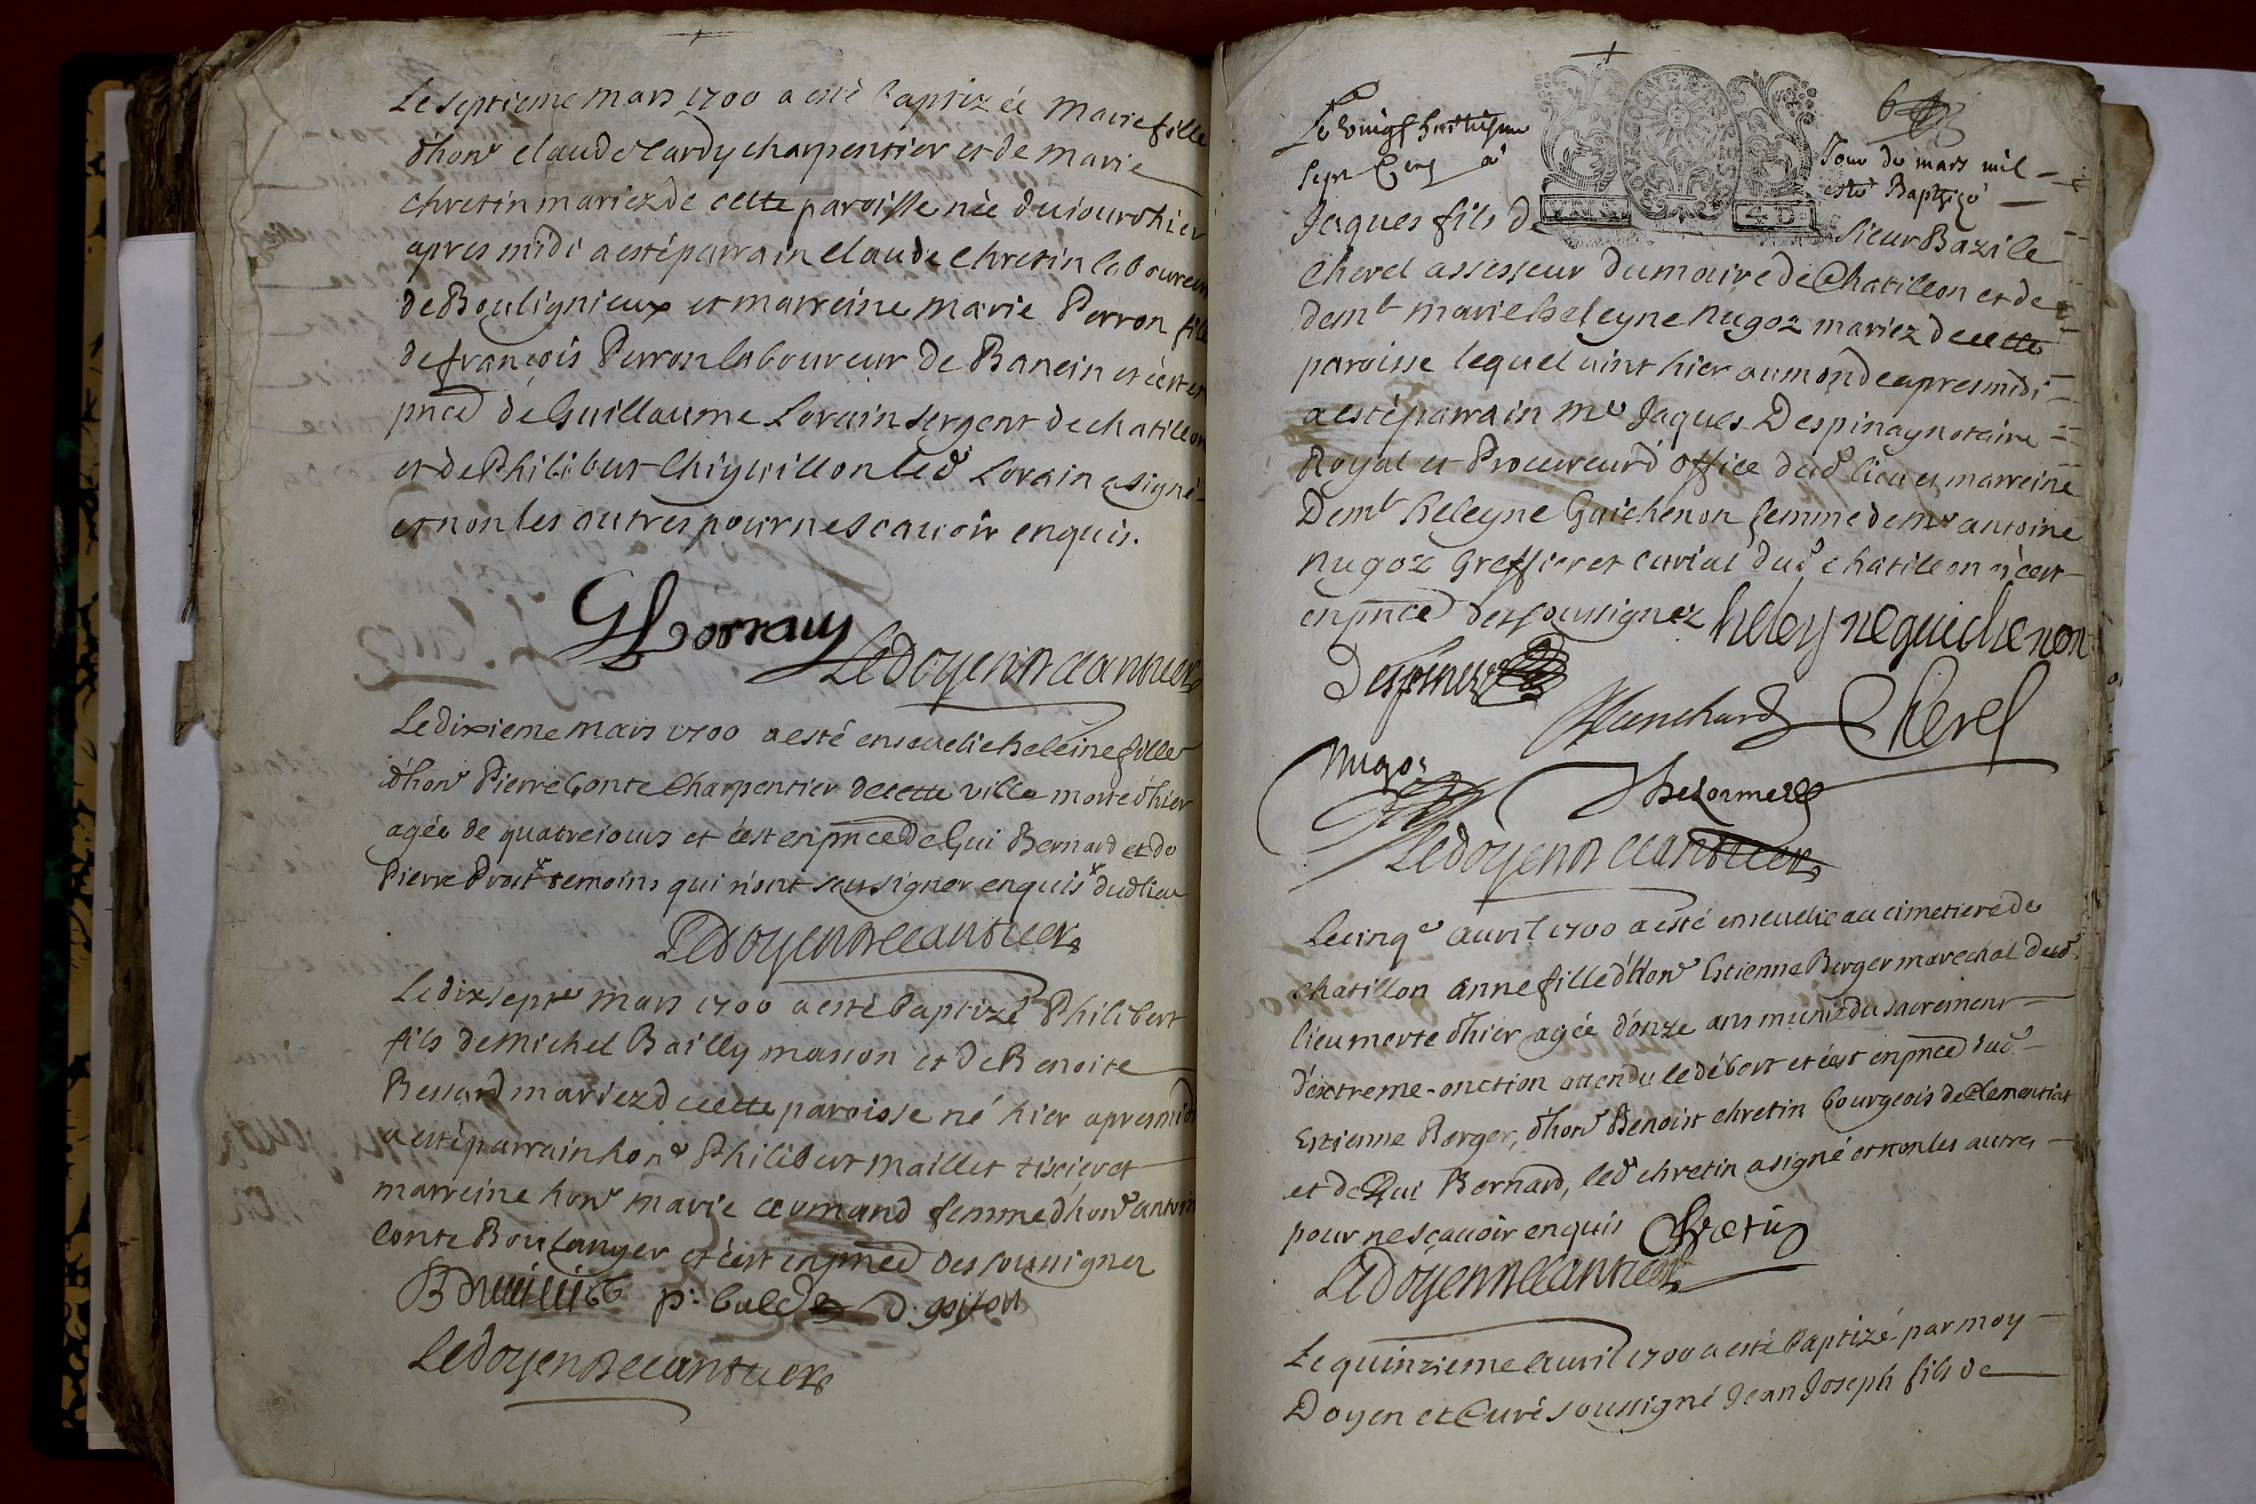 Le septieme mars 1700 a esté baptizée Marie fille
d'hon^e Claude Cardy charpentier et de Marie
Chretin mariez de cette paroisse née du jourd'hier
apres midi a esté parrain Claude Chretin laboureur
de Boulignieux et marreine Marie Perron fille
de françois Perron laboureur de Banein et c'est en
pnce de Guillaume Lorain sergent de chatillon
et de Philibert Chiquillon led Lorain a signé
et non les autres pour ne scavoir enquis.
G Lorrain
Le doyen
Le dixieme mars 1700 a esté ensevelie heleine fille
d'hon^e Pierre Conte Charpentier de cette ville morte d'hier
agée de quatre jours et c'est en pnce de Gui Bernard et de
Pierre Prost temoins qui n'ont seu signer enquis dud lieu
Le doyen
Le dixsept^e mars 1700 a esté baptizé Philibert
fils de Michel Bailly masson et de Benoite
Bessard mariez de cette paroisse né hier apres midi
a esté parrain hon^e Philibert Maillet tixier et
marreine hon^e Marie femme d'hon^e antoin
Conte Boulanger et c'est en pnce des soussignez
D. goyton
Le doyen
Le vingt huitiesme Jour de mars mil
sept Cens a esté Baptizé
Jaques fils de Sieur Bazile
Cherel assesseur du maire de Chatillon et de
dem^lle marie heleyne Nugoz mariez de cette
paroisse lequel vint hier au monde apres midi
a esté parrain M^e Jaques Despinay notaire
Royal et Procureur d'office dud lieu et marreine
Dem^lle heleyne Guichenon femme de m^r antoine
Nugoz Greffier et curial dud chatillon et c'est
en pnce des soussignez heleyne guichenon
Despiney
Blanchard Cherel
Nugoz
Delormes
Le doyen
Le cinq^e avril 1700 a esté ensevelie au cimetiere de
chatillon anne fille d'Hon^e Estienne Berger marechal dud
lieu morte d'hier agée d'onze ans munie du sacrement
d'extreme-onction attendu le débort et c'est en pnce dud
Estienne Berger, d'hon^e Benoist chretin bourgeois de Clementiat
et de Gui Bernard, led chretin a signé et non les autres
pour ne sçavoir enquis Chretin
Le doyen
Le quinzieme avril 1700 a esté baptizé par moy
Doyen et Curé soussigné Jean Joseph fils de